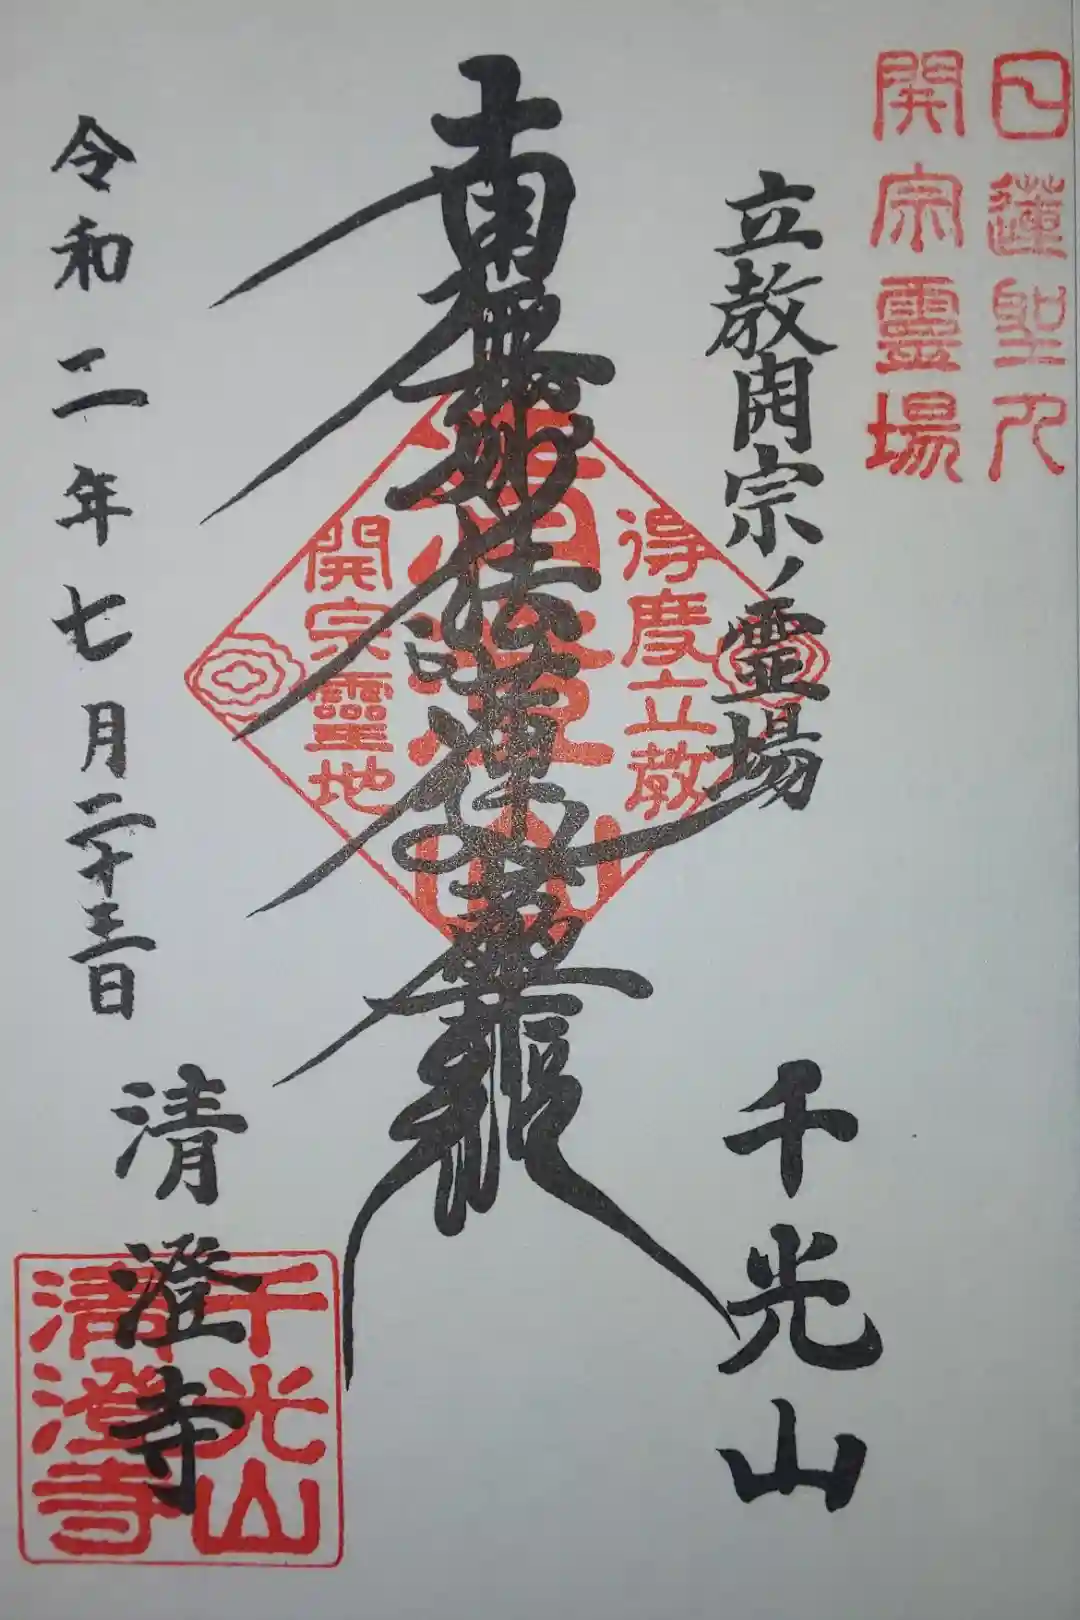 日蓮聖人
開宗霊場
立教開宗ノ霊場
千光山
南無妙法蓮華経
得度立教
開宗靈地
令和二年七月二十三日
清澄寺
千光山
清澄寺